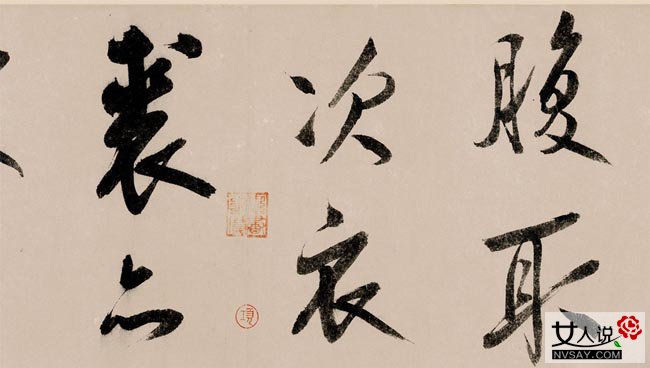 腹取
次衣
裘亦
項
女人说
NVSAY.COM